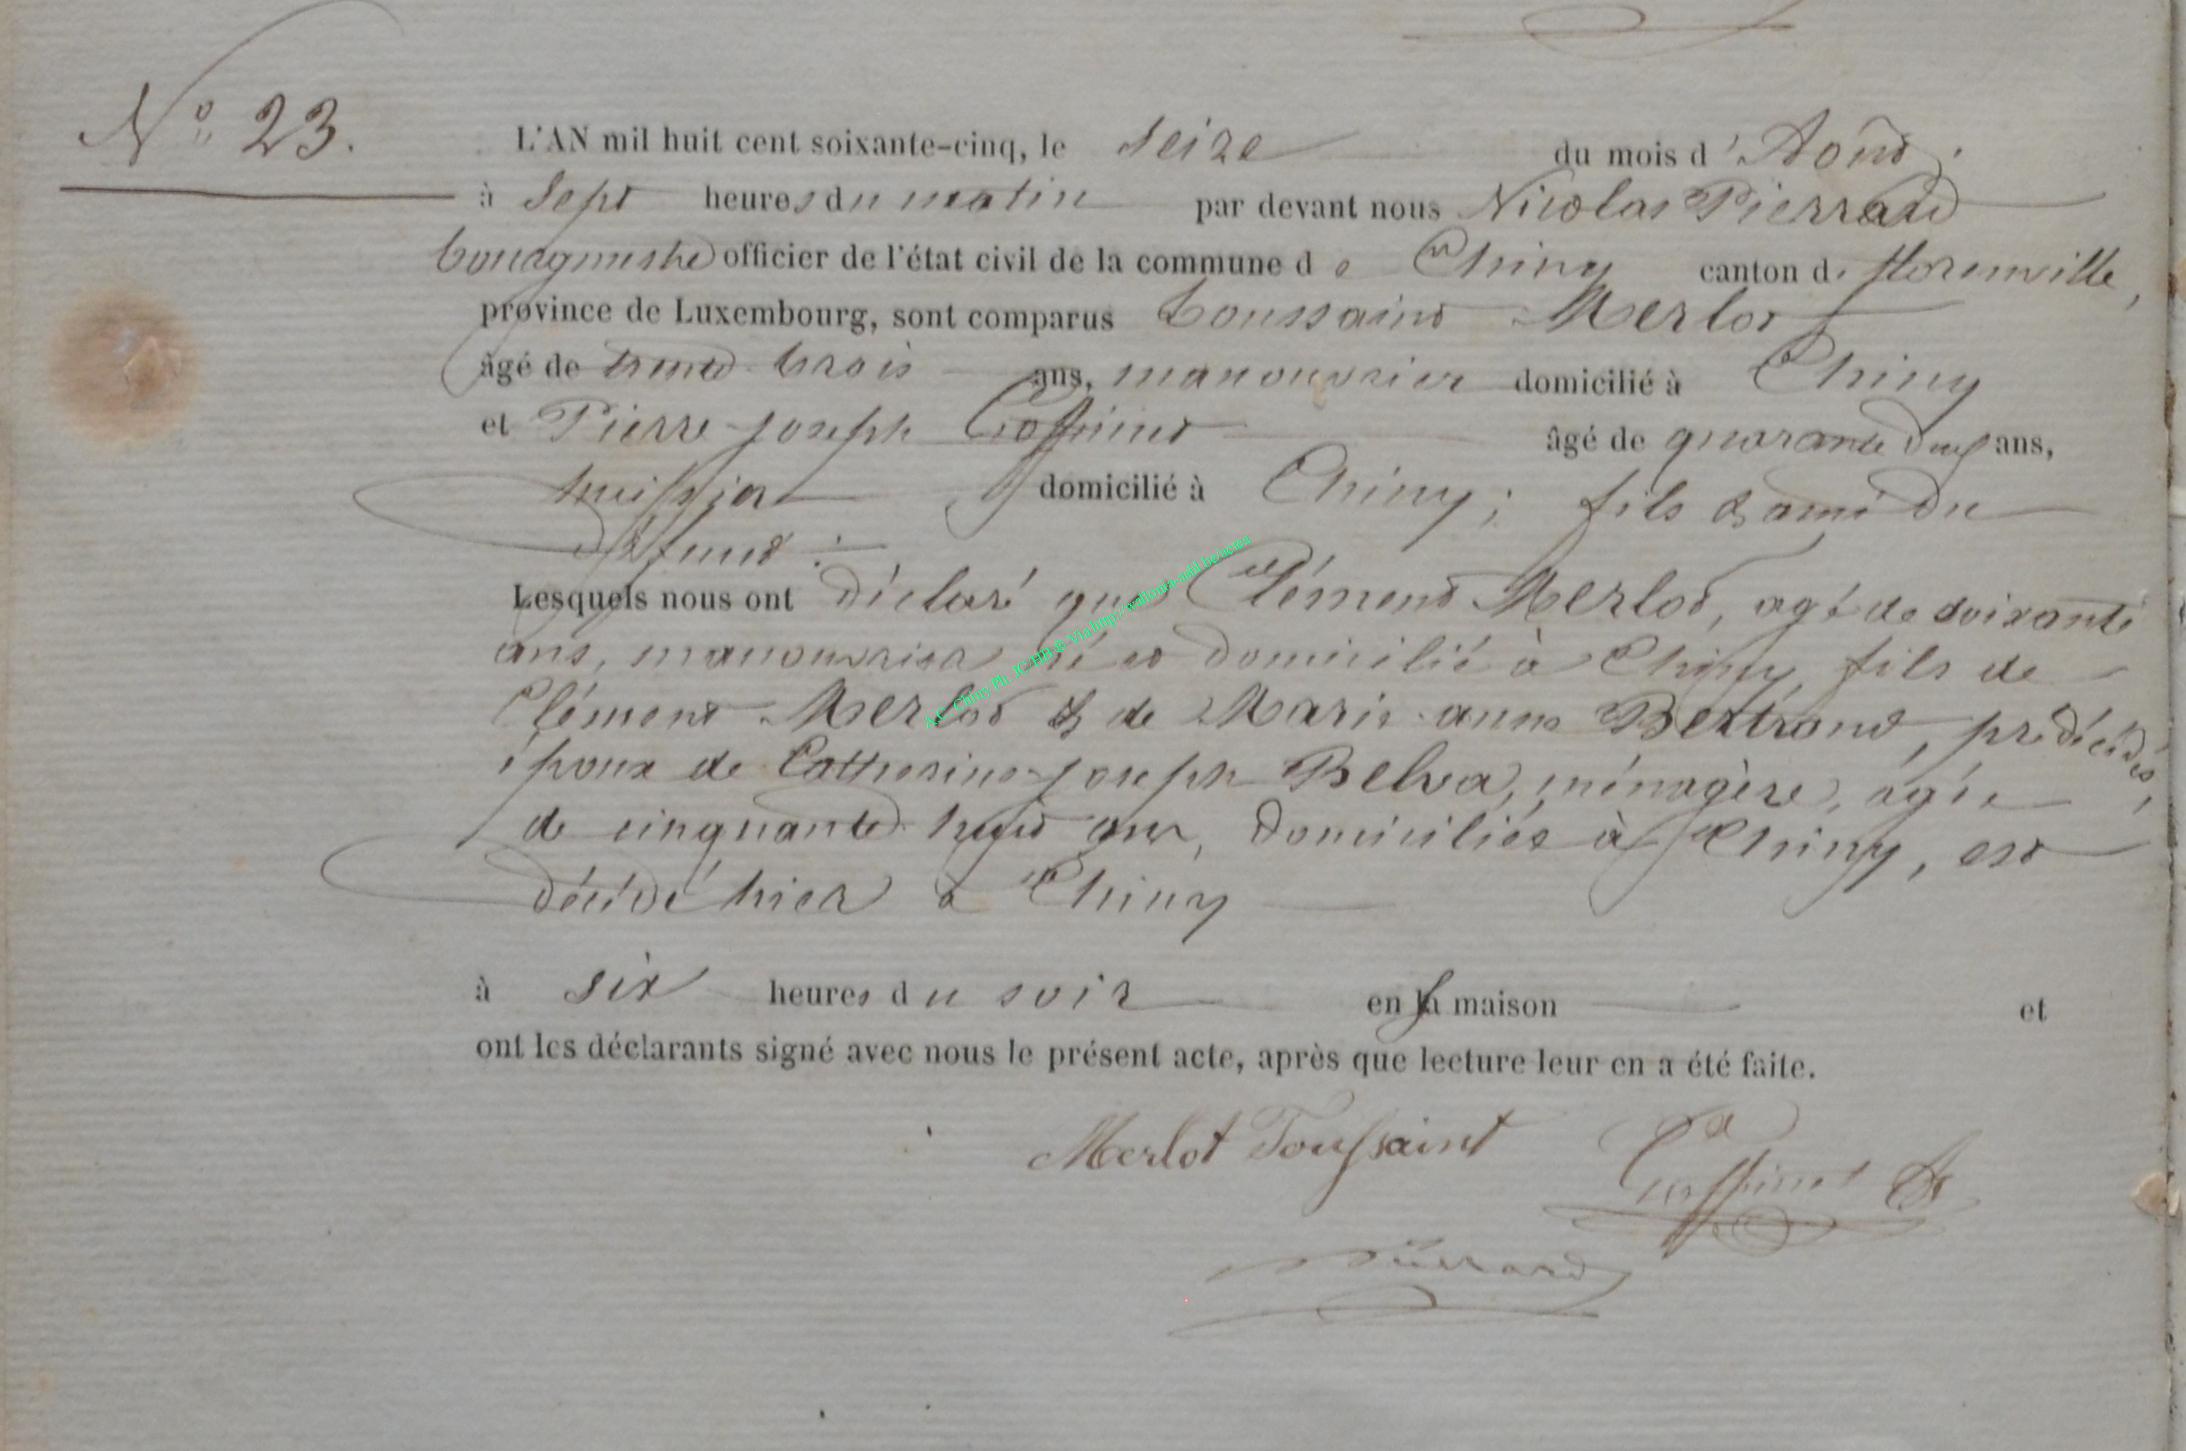 N° 23.
L'AN mil huit cent soixante-cinq, le seize du mois d'Août,
à sept heures du matin par devant nous Nicolas Pierrard
bourgmestre officier de l'état civil de la commune de Chiny canton de florenville,
province de Luxembourg, sont comparus Toussaint Merlot
âgé de trente trois ans, manouvrier domicilié à Chiny
et Pierre-joseph âgé de quarante ans,
huissier domicilié à Chiny; fils & ami du
défunt :
Lesquels nous ont déclaré que Clément Merlot, agé de soixante
ans, manouvrier né et domicilié à Chiny, fils de
Clément Merlot & de Marie-anne Bertrand, prédécédés,
époux de Catherine-joseph Belva, ménagère, agée
de cinquante huit ans, domiciliée à Chiny, est
décédé hier à Chiny
à six heures du soir en sa maison et
ont les déclarants signé avec nous le présent acte, après que lecture leur en a été faite.
Merlot Toussaint
Pierrard